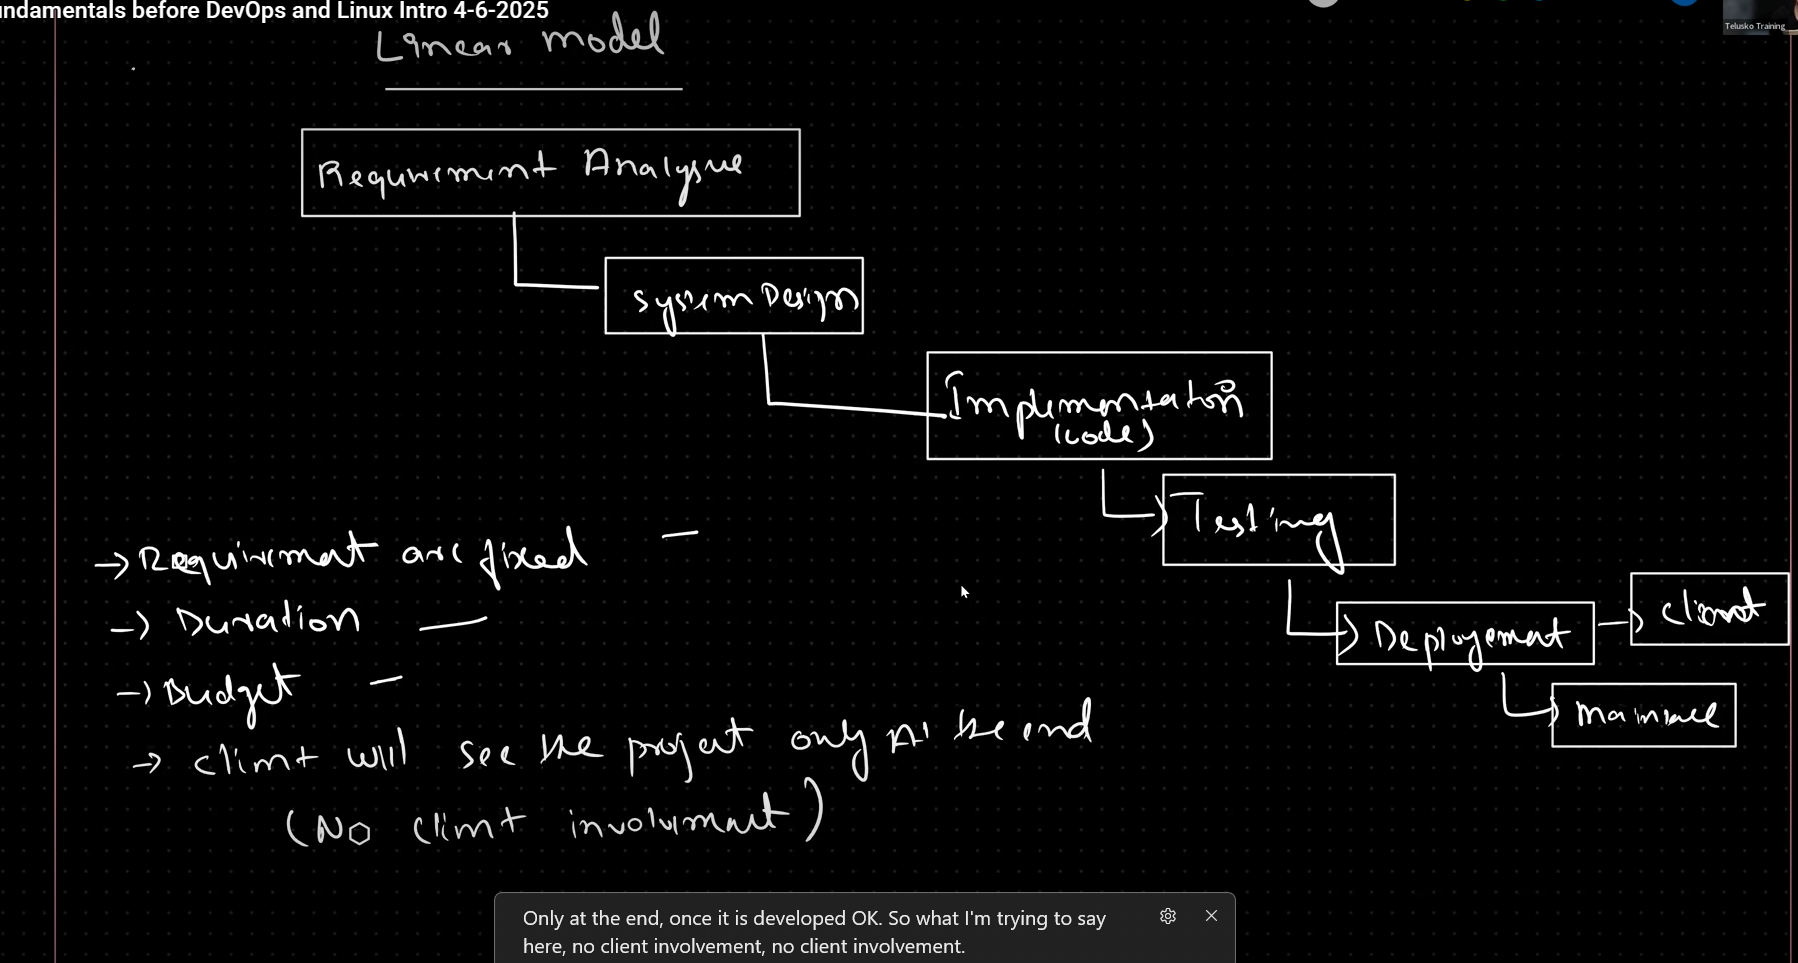 ndamentals before DevOps and Linux Intro 4-6-2025
Telusko Training
Linear model
Requirement Analysis
System Design
Implementation
(code)
Testing
Deployement
Client
→ Requirement are fixed —
→ Duration —
→ Budget —
→ client will see the project only At the end
(No client involvement)
Only at the end, once it is developed OK. So what I'm trying to say
here, no client involvement, no client involvement.